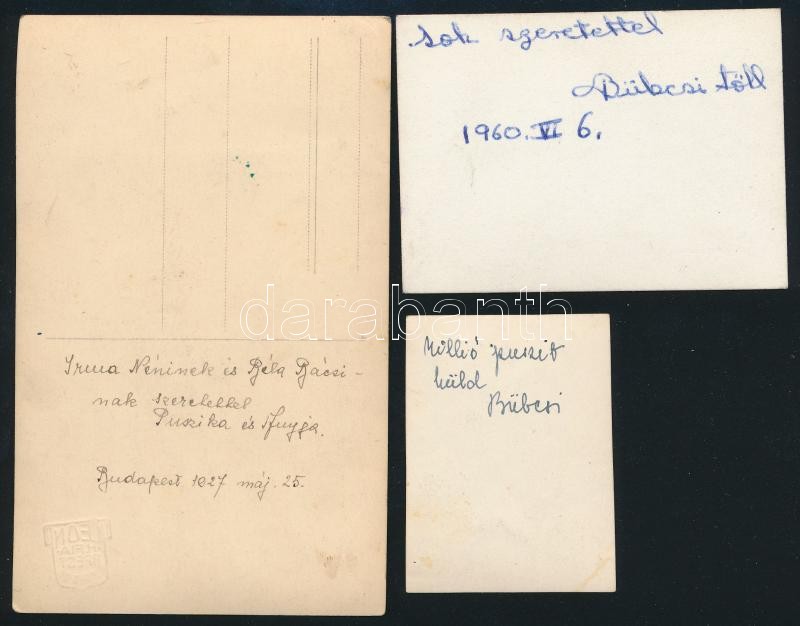 Irma Néninek és Béla Bácsi-
nak szeretettel
Puszika és
Budapest 1927 máj. 25.
sok szeretettel
Bübcsi től
1960. VI 6.
Millió puszit
küld
Bübcsi
darabanth